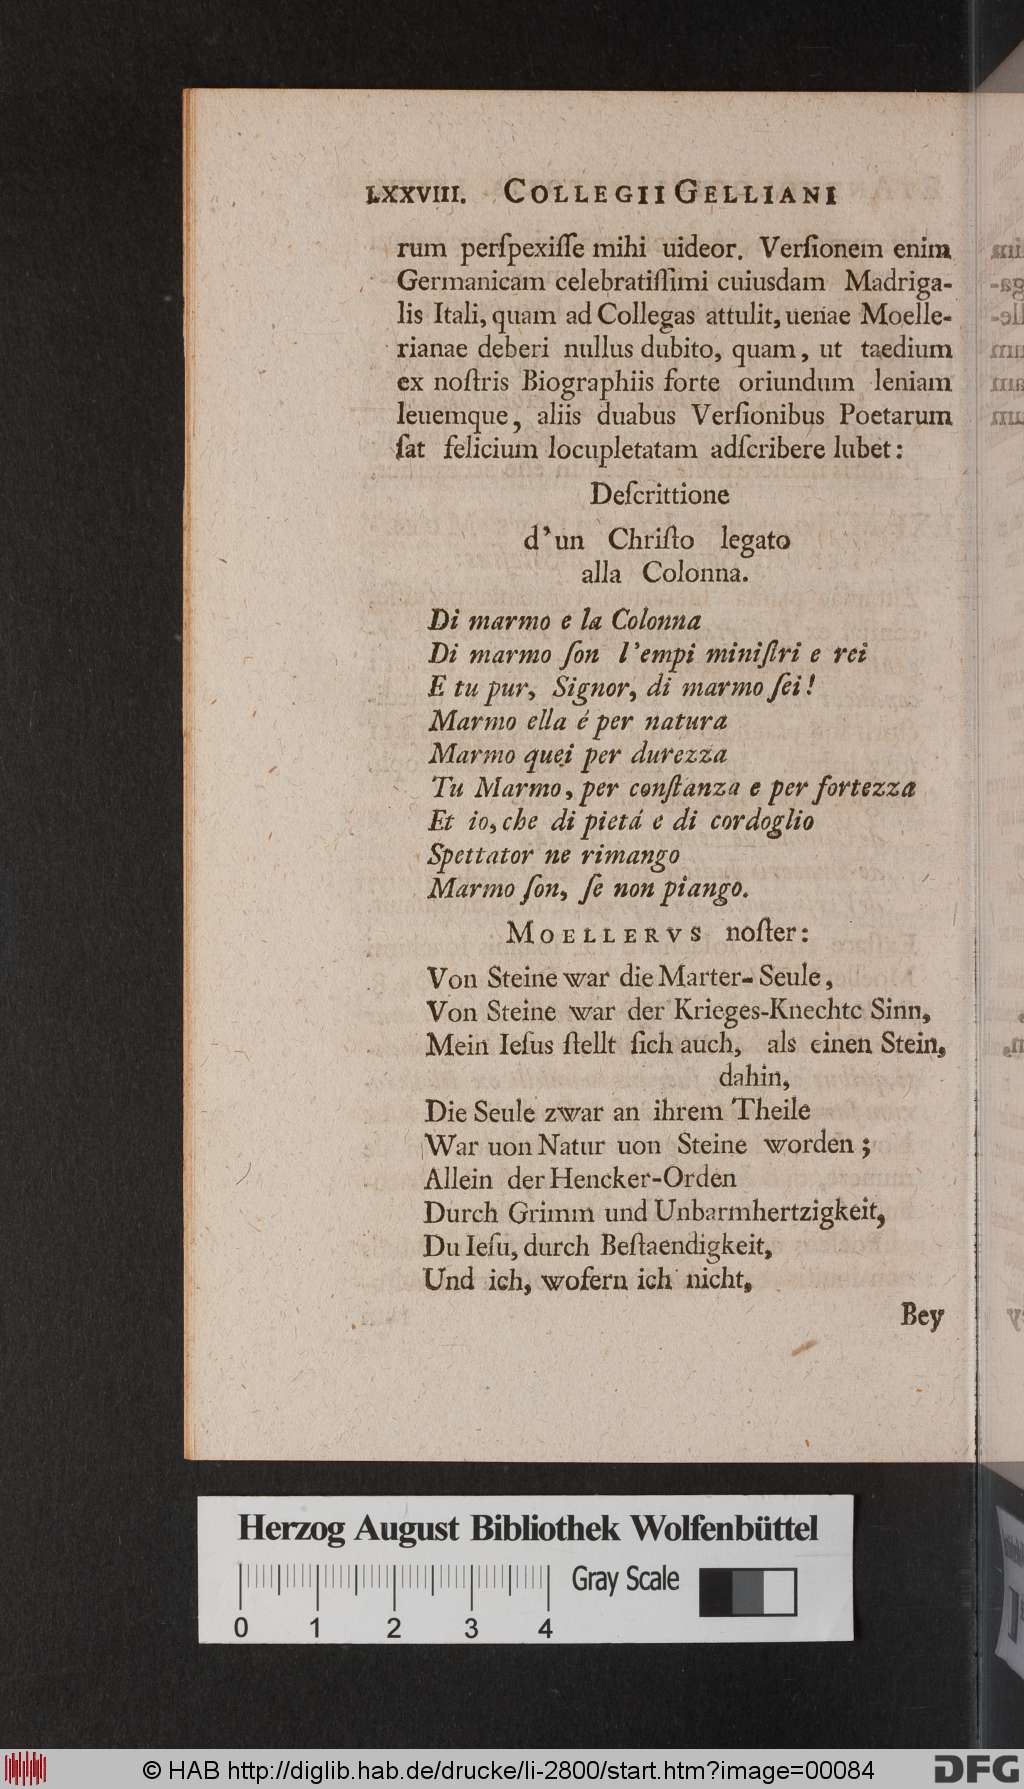 LXXVIII. COLLEGII GELLIANI
rum perſpexiſſe mihi uideor. Verſionem enim
Germanicam celebratiſſimi cuiusdam Madriga-
lis Itali, quam ad Collegas attulit, uenae Moelle-
rianae deberi nullus dubito, quam, ut taedium
ex noſtris Biographiis forte oriundum leniam
leuemque, aliis duabus Verſionibus Poetarum
ſat felicium locupletatam adſcribere lubet:
Deſcrittione
d'un Chriſto legato
alla Colonna.
Di marmo e la Colonna
Di marmo ſon l'empi miniſtri e rei
E tu pur, Signor, di marmo ſei!
Marmo ella é per natura
Marmo quei per durezza
Tu Marmo, per conſtanza e per fortezza
Et io, che di pietá e di cordoglio
Spettator ne rimango
Marmo ſon, ſe non piango.
MOELLERVS noſter:
Von Steine war die Marter-Seule,
Von Steine war der Krieges-Knechte Sinn,
Mein Ieſus ſtellt ſich auch, als einen Stein,
dahin,
Die Seule zwar an ihrem Theile
War uon Natur uon Steine worden;
Allein der Hencker-Orden
Durch Grimm und Unbarmhertzigkeit,
Du Ieſu, durch Beſtaendigkeit,
Und ich, wofern ich nicht,
Bey
Herzog August Bibliothek Wolfenbüttel
Gray Scale
0 1 2 3 4
© HAB http://diglib.hab.de/drucke/li-2800/start.htm?image=00084
DFG